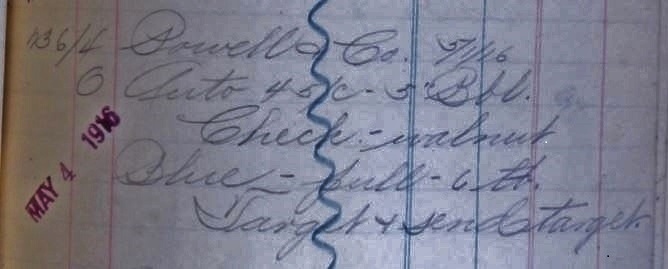 736/4 Powell & Co. 5/1/16
0 Auto 45/c - 5" Bbl.
Check. - walnut
Blue - full - 6 lb.
Target & send target.
MAY 4 1916